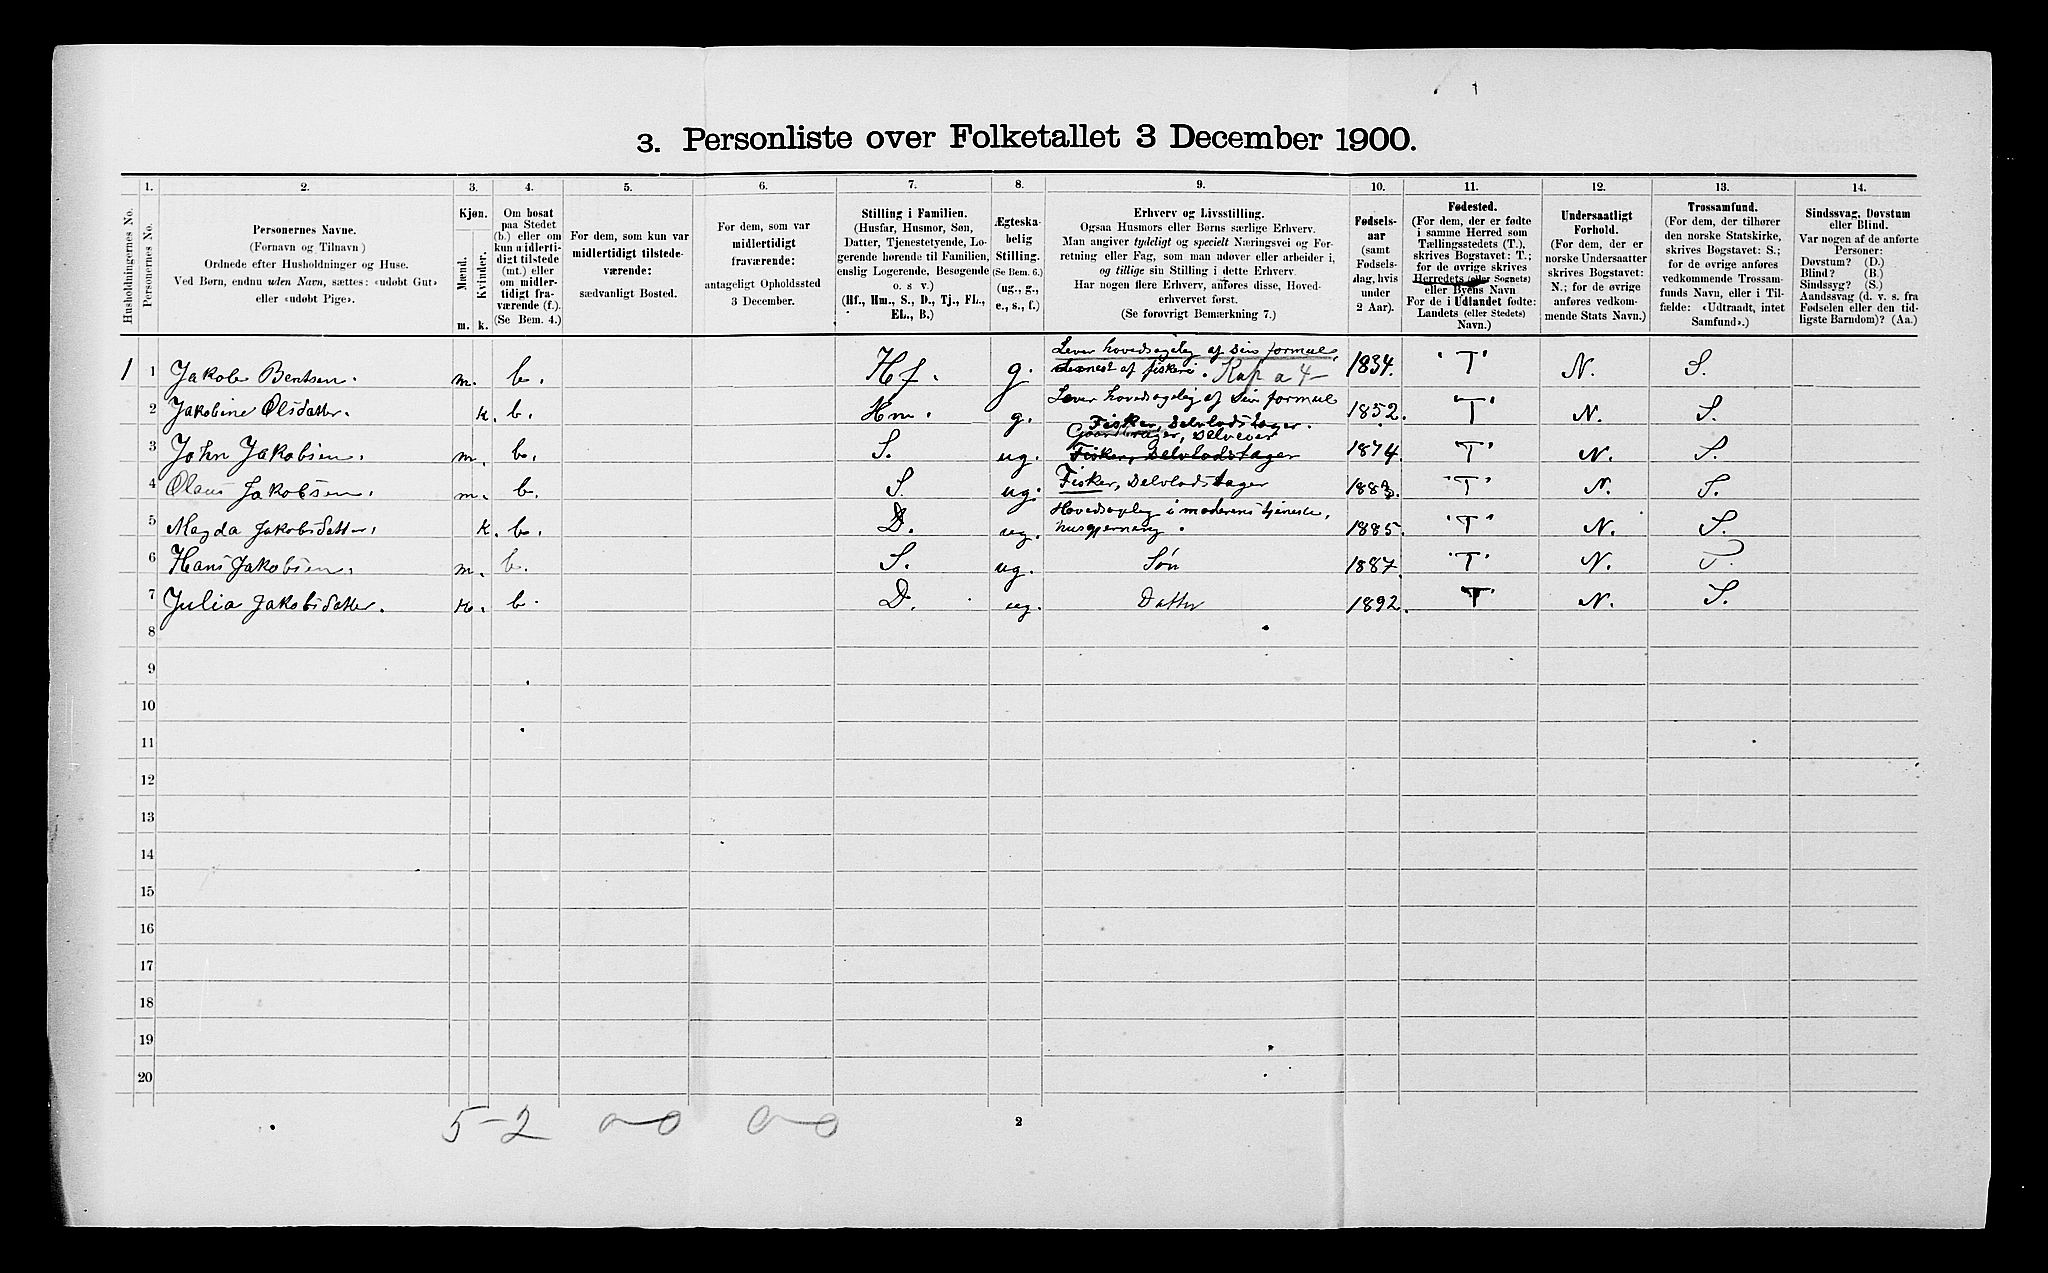 3. Personliste over Folketallet 3 December 1900.
1. 2. 3. 4. 5. 6. 7. 8. 9. 10. 11. 12. 13. 14.
Husholdningernes No.
Personernes No.
Personernes Navne.
(Fornavn og Tilnavn)
Ordnede efter Husholdninger og Huse.
Ved Børn, endnu uden Navn, sættes: «udøbt Gut»
eller «udøbt Pige».
Kjøn.
Mænd.
Kvinder.
m. k.
Om bosat
paa Stedet
(b.) eller om
kun midlerti-
digt tilstede
(mt.) eller
om midler-
tidigt fra-
værende (f.).
(Se Bem. 4.)
For dem, som kun var
midlertidigt tilstede-
værende:
sædvanligt Bosted.
For dem, som var
midlertidigt
fraværende:
antageligt Opholdssted
3 December.
Stilling i Familien.
(Husfar, Husmor, Søn,
Datter, Tjenestetyende, Lo-
gerende hørende til Familien,
enslig Logerende, Besøgende
o. s v.)
(Hf., Hm., S., D., Tj., FL.,
EL., B.)
Ægteska-
belig
Stilling.
(Se Bem. 6.)
(ug., g.,
e., s., f.)
Erhverv og Livsstilling.
Ogsaa Husmors eller Børns særlige Erhverv.
Man angiver tydeligt og specielt Næringsvei og For-
retning eller Fag, som man udøver eller arbeider i,
og tillige sin Stilling i dette Erhverv.
Har nogen flere Erhverv, anføres disse, Hoved-
erhvervet først.
(Se forøvrigt Bemærkning 7.)
Fødsels-
aar
(samt
Fødsels-
dag, hvis
under
2 Aar).
Fødested.
(For dem, der er fødte
i samme Herred som
Tællingsstedets (T.),
skrives Bogstavet: T.;
for de øvrige skrives
Herredets (eller Sognets)
eller Byens Navn
For de i Udlandet fødte:
Landets (eller Stedets)
Navn.)
Undersaatligt
Forhold.
(For dem, der er
norske Undersaatter
skrives Bogstavet:
N.; for de øvrige
anføres vedkom-
mende Stats Navn.)
Trossamfund.
(For dem, der tilhører
den norske Statskirke,
skrives Bogstavet: S.;
for de øvrige anføres
vedkommende Trossam-
funds Navn, eller i Til-
fælde: «Udtraadt, intet
Samfund».)
Sindssvag, Døvstum
eller Blind.
Var nogen af de anførte
Personer:
Døvstum? (D.)
Blind? (B.)
Sindssyg? (S.)
Aandssvag (d. v. s. fra
Fødselen eller den tid-
ligste Barndom)? (Aa.)
Lever hovedsagelig af sin formue,
1 1 Jakob Bentsen. m. b. Hf. g. dernest af fiskeri. Kap a 4- 1834. "T" N. S.
Lever hovedsagelig af sin formue
2 Jakobine Olsdatter. k. b. Hm. g. 1852. "T" N. S.
Fisker, Delvlodstager.
Gaardbruger, Delveier
3 John Jakobsen. m. b. S. ug. Fisker, Delvlodstager 1874. "T" N. S.
4 Olaus Jakobsen. m. b. S. ug. Fisker, Delvlodstager 1883. "T" N. S.
Hovedsagleg i moderens tjeneste,
5 Magda Jakobsdatter. k. b. D. ug. husgjerning. 1885. "T" N. S.
6 Hans Jakobsen. m. b. S. ug. Søn 1887. "T" N. S.
7 Julia Jakobsdatter. k. b. D. ug. Datter 1892. "T" N. S.
8
9
10
11
12
13
14
15
16
17
18
19
20
5-2 0-0 0-0
2